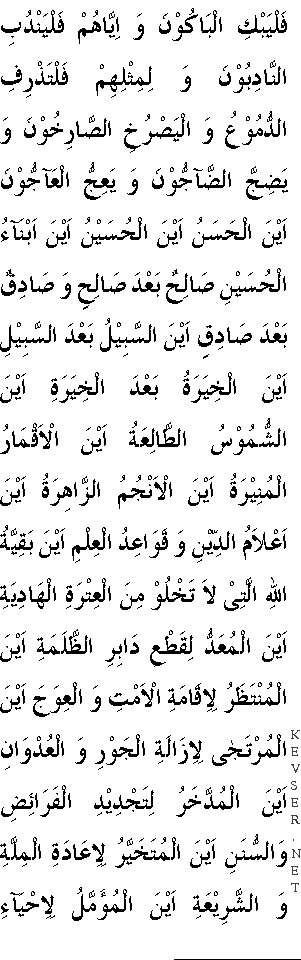 فَلْيَبْكِ الْبَاكُوْنَ وَ اِيَّاهُمْ فَلْيَنْدُبِ
النَّادِبُوْنَ وَ لِمِثْلِهِمْ فَلْتَذْرِفِ
الدُّمُوْعُ وَ الْيَصْرُخِ الصَّارِخُوْنَ وَ
يَضِجَّ الضَّآجُّوْنَ وَ يَعِجُّ الْعَآجُّوْنَ
اَيْنَ الْحَسَنُ اَيْنَ الْحُسَيْنُ اَيْنَ اَبْنَآءُ
الْحُسَيْنِ صَالِحٌ بَعْدَ صَالِحٍ وَ صَادِقٌ
بَعْدَ صَادِقٍ اَيْنَ السَّبِيْلُ بَعْدَ السَّبِيْلِ
اَيْنَ الْخِيَرَةُ بَعْدَ الْخِيَرَةِ اَيْنَ
الشُّمُوْسُ الطَّالِعَةُ اَيْنَ الْاَقْمَارُ
الْمُنِيْرَةُ اَيْنَ الْاَنْجُمُ الزَّاهِرَةُ اَيْنَ
اَعْلاَمُ الدِّيْنِ وَ قَوَاعِدُ الْعِلْمِ اَيْنَ بَقِيَّةُ
اللهِ الَّتِىْ لاَ تَخْلُوْ مِنَ الْعِتْرَةِ الْهَادِيَةِ
اَيْنَ الْمُعَدُّ لِقَطْعِ دَابِرِ الظَّلَمَةِ اَيْنَ
الْمُنْتَظَرُ لِاِقَامَةِ الْاَمْتِ وَ الْعِوَجَ اَيْنَ
الْمُرْتَجٰى لِاِزَالَةِ الْجَوْرِ وَ الْعُدْوَانِ
اَيْنَ الْمُدَّخَرُ لِتَجْدِيْدِ الْفَرَائِضِ
وَالسُّنَنِ اَيْنَ الْمُتَخَيَّرُ لِاِعَادَةِ الْمِلَّةِ
وَ الشَّرِيْعَةِ اَيْنَ الْمُؤَمَّلُ لِاِحْيَآءِ
KEVSER.NET